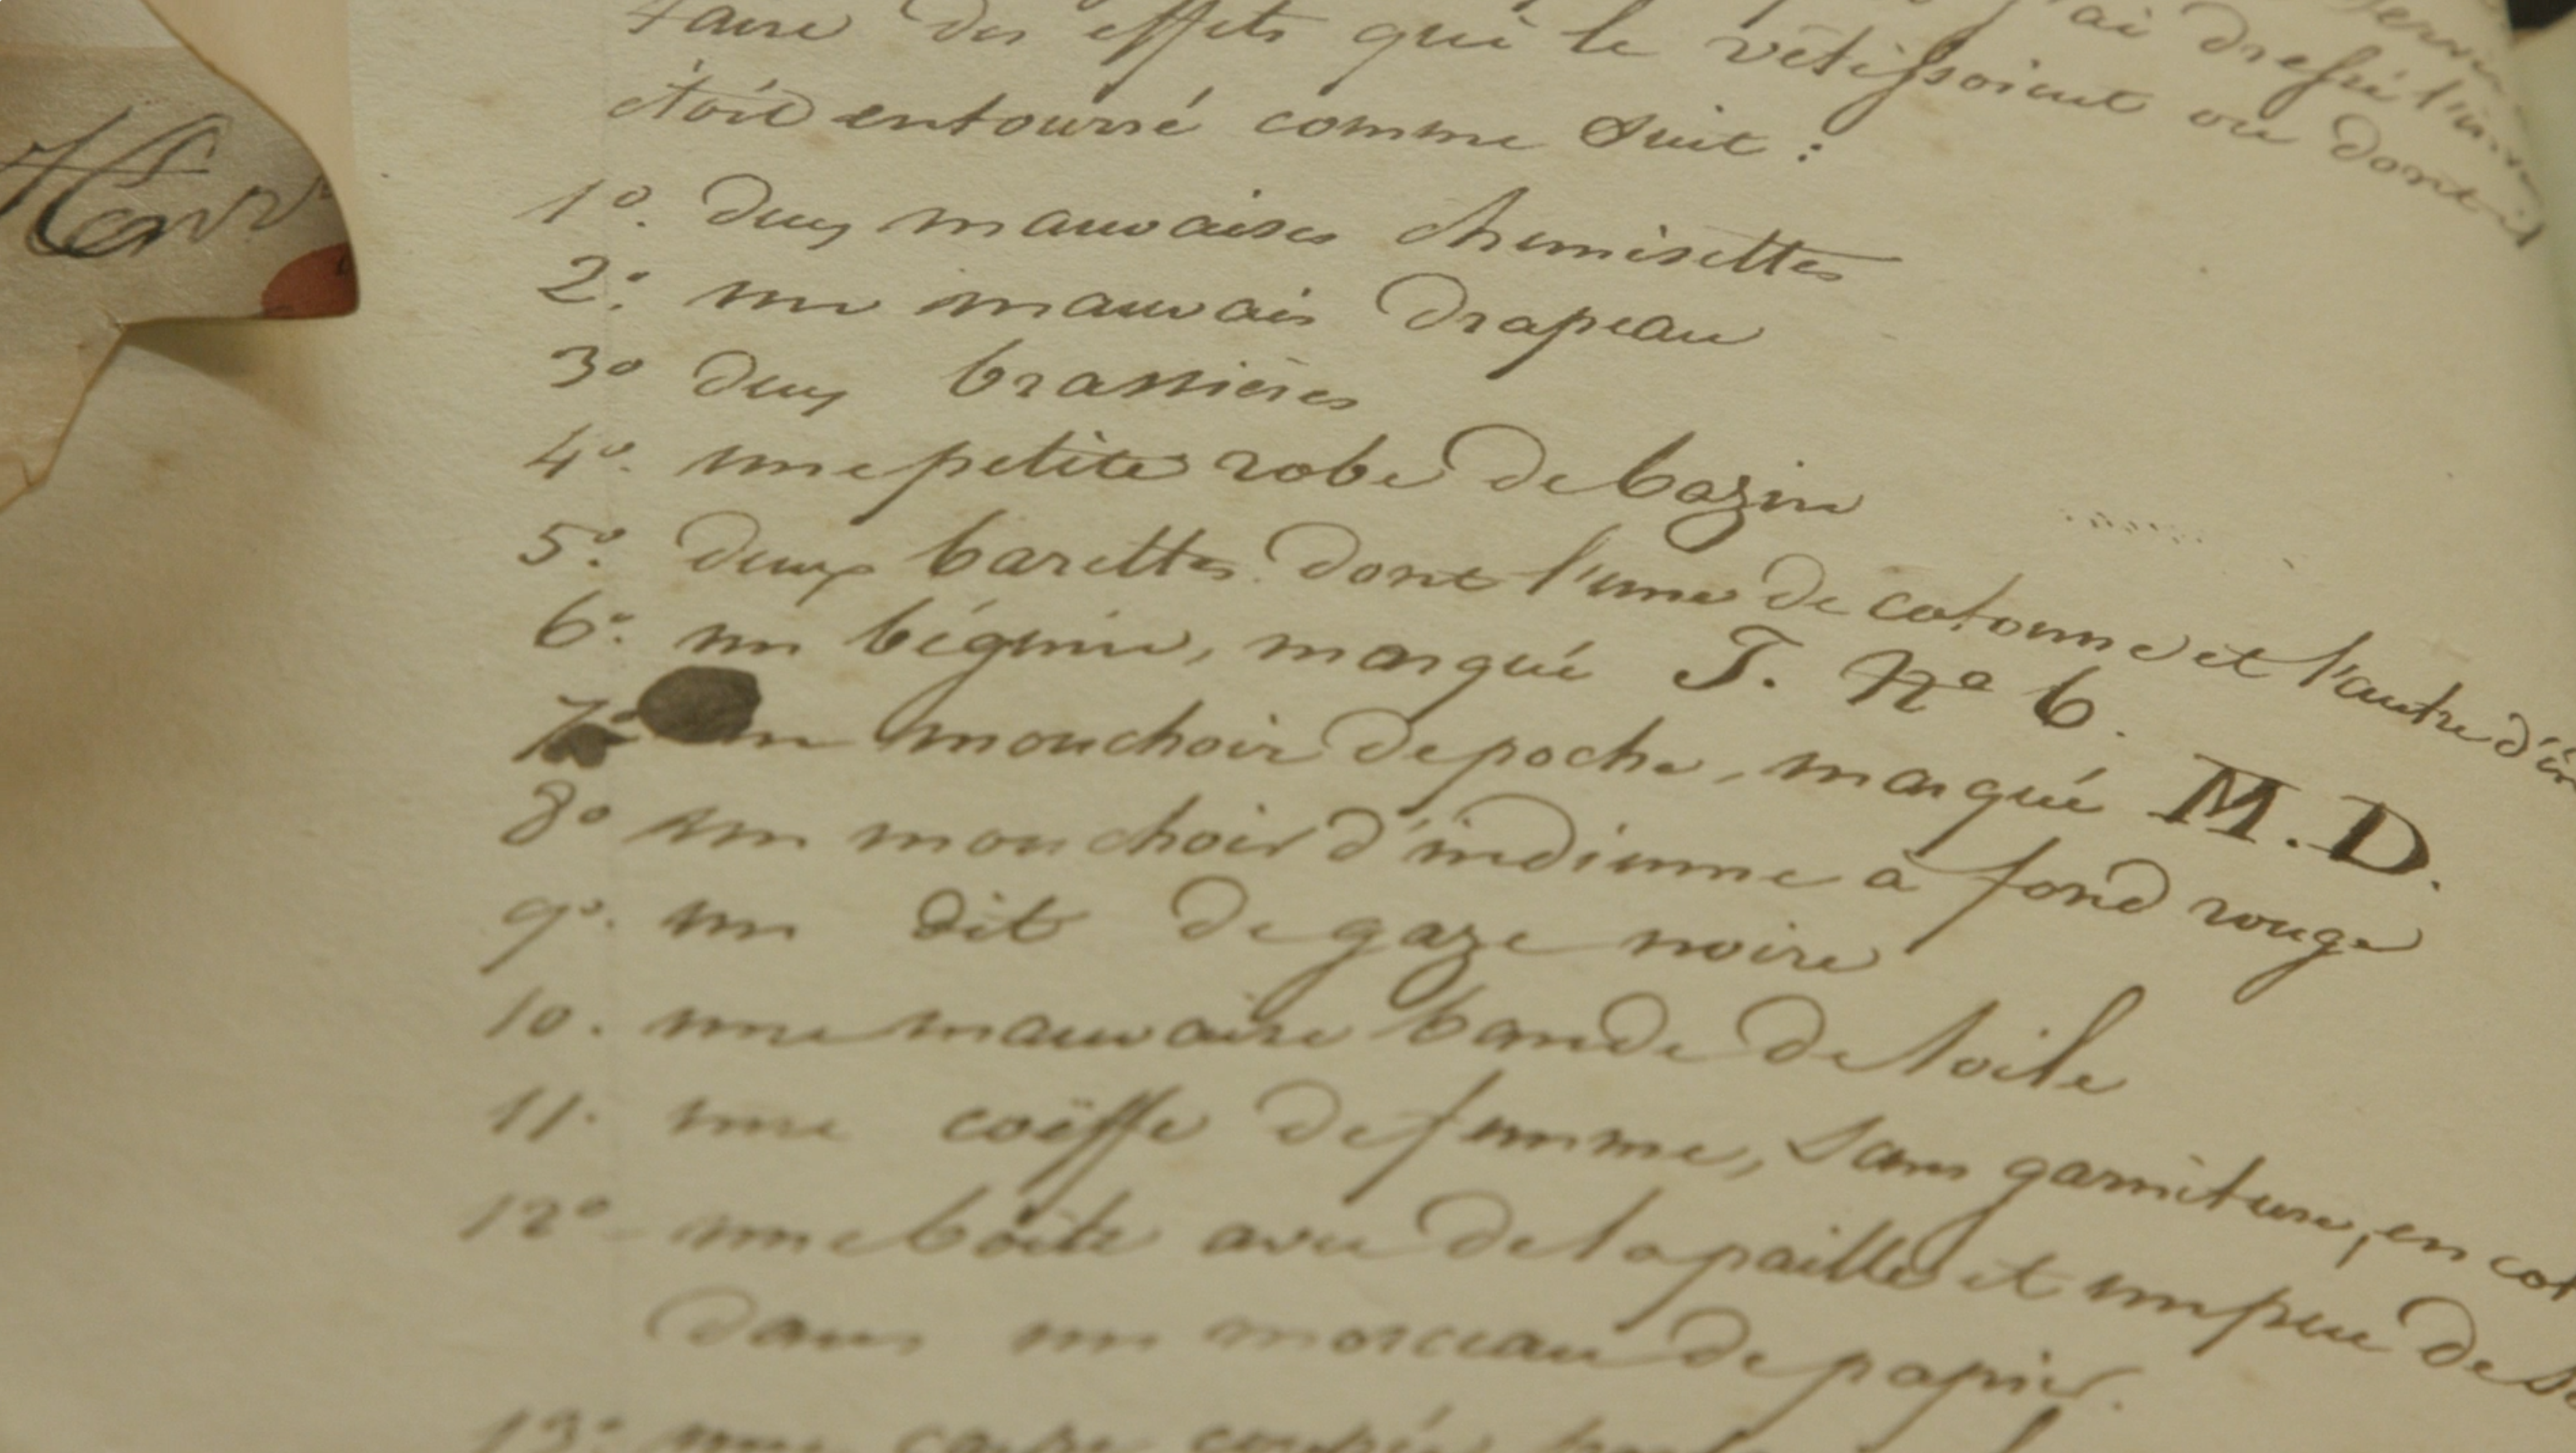 j'ai dressé l'in
taire des effets qui le vêtissoient ou dont il
étoit entourré comme suit :
1º. deux mauvaises chemisettes
2º. un mauvais drapeau
3º deux brassières
4º. une petite robe de bazin
5º. deux barettes dont l'une de cotonne et l'autre d'in
6º. un béguin, marqué J. Nº 6.
7º un mouchoir de poche, marqué M. D.
8º un mouchoir d'indienne à fond rouge
9º. un dit de gaze noire
10. une mauvaise bande de toile
11. une coëffe de femme, sans garniture, en cot
12º une boëte avec de la paille et un peu de
dans un morceau de papier.
13º une carte coupée
Henr